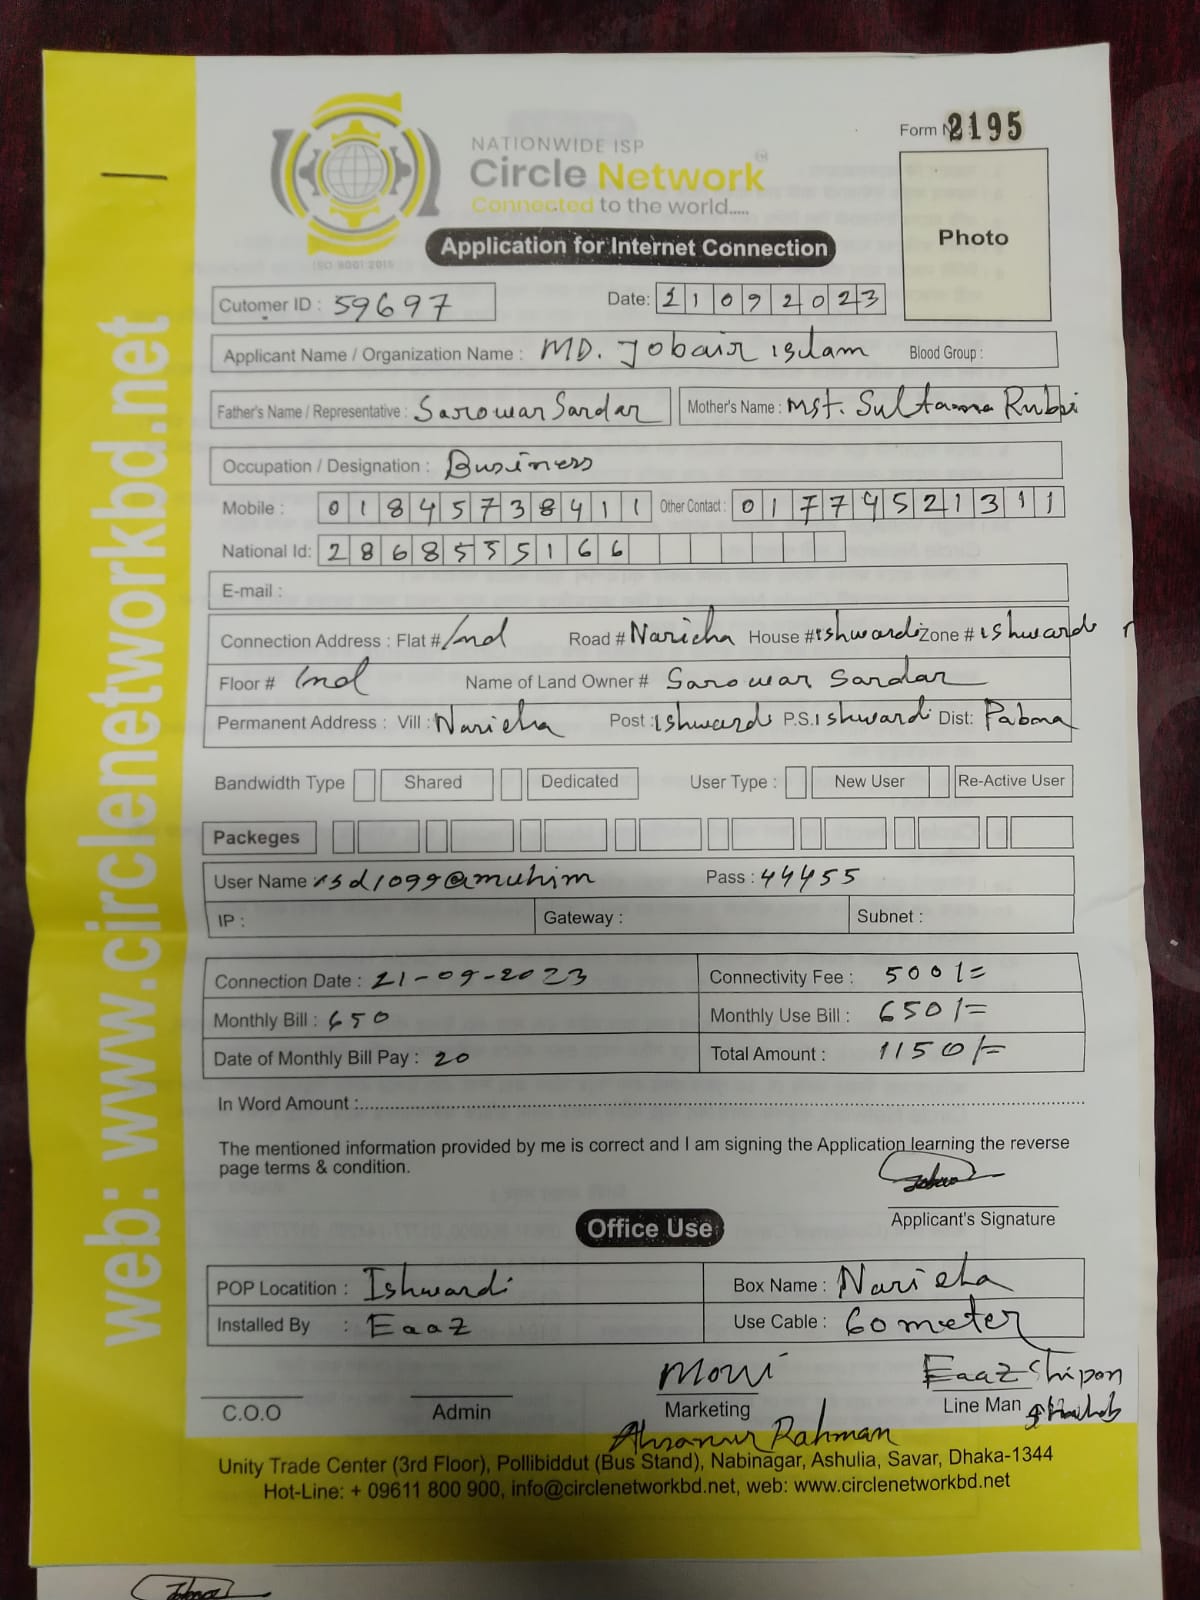 Form No 2195
NATIONWIDE ISP
Circle Network
Connected to the world.....
ISO 9001 2015
Application for Internet Connection
Photo
Cutomer ID : 59697 Date: 21092023
Applicant Name / Organization Name : MD. Jobair islam Blood Group :
Father's Name / Representative : Sarowar Sardar Mother's Name : Mst. Sultana Rubbi
Occupation / Designation : Business
Mobile : 01845738411 Other Contact : 01774521311
National Id: 2868555166
E-mail :
Connection Address : Flat # Ind Road # Naricha House # ishwardi Zone # ishwardi
Floor # Ind Name of Land Owner # Sarowar Sardar
Permanent Address : Vill : Naricha Post : Ishwardi P.S. Ishwardi Dist: Pabna
Bandwidth Type Shared Dedicated User Type : New User Re-Active User
Packeges
User Name isd1099@muhim Pass : 44455
IP : Gateway : Subnet :
Connection Date : 21-09-2023 Connectivity Fee : 500/=
Monthly Bill : 650 Monthly Use Bill : 650/=
Date of Monthly Bill Pay : 20 Total Amount : 1150/=
In Word Amount :
The mentioned information provided by me is correct and I am signing the Application learning the reverse
page terms & condition.
Applicant's Signature
Office Use
POP Locatition : Ishwardi Box Name : Naricha
Installed By : Eaaz Use Cable : 60 meter
Moni Eaaz Shipon
C.O.O Admin Marketing Line Man
Rahman
Unity Trade Center (3rd Floor), Pollibiddut (Bus Stand), Nabinagar, Ashulia, Savar, Dhaka-1344
Hot-Line: + 09611 800 900, info@circlenetworkbd.net, web: www.circlenetworkbd.net
web: www.circlenetworkbd.net